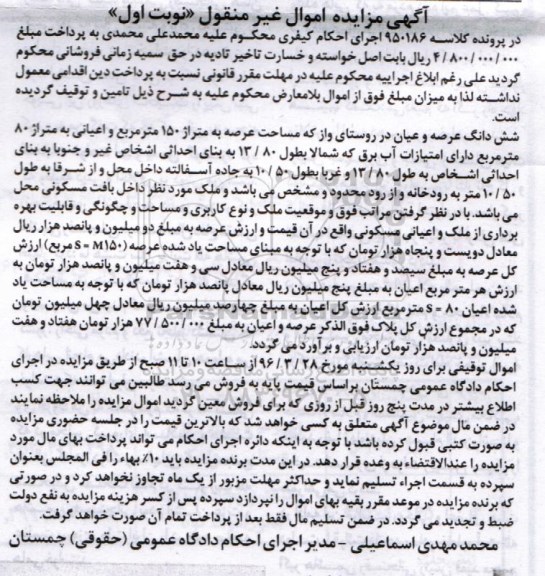 آگهی مزایده اموال غیر منقول «نوبت اول»
در پرونده کلاسه ۹۵۰۱۸۶ اجرای احکام کیفری محکوم علیه محمدعلی محمدی به پرداخت مبلغ
۴/۸۰۰/۰۰۰/۰۰۰ ریال بابت اصل خواسته و خسارت تاخیر تادیه در حق سمیه زمانی فروشانی محکوم
گردید علی رغم ابلاغ اجراییه محکوم علیه در مهلت مقرر قانونی نسبت به پرداخت دین اقدامی معمول
نداشته لذا به میزان مبلغ فوق از اموال بلامعارض محکوم علیه به شرح ذیل تامین و توقیف گردیده
است.
شش دانگ عرصه و عیان در روستای واز که مساحت عرصه به متراژ ۱۵۰ مترمربع و اعیانی به متراژ ۸۰
مترمربع دارای امتیازات آب برق که شمالا بطول ۱۳/۸۰ به بنای احداثی اشخاص غیر و جنوبا به بنای
احداثی اشخاص به طول ۱۳/۸۰ و غربا بطول ۱۰/۵۰ به جاده آسفالته داخل محل و از شرقا به طول
۱۰/۵۰ متر به رودخانه و از رود محدود و مشخص می باشد و ملک مورد نظر داخل بافت مسکونی محل
می باشد. با در نظر گرفتن مراتب فوق و موقعیت ملک و نوع کاربری و مساحت و چگونگی و قابلیت بهره
برداری از ملک و اعیانی مسکونی واقع در آن قیمت و ارزش عرصه به مبلغ دو میلیون و پانصد هزار ریال
معادل دویست و پنجاه هزار تومان که با توجه به مبنای مساحت یاد شده عرصه (S = M۱۵۰ مربع) ارزش
کل عرصه به مبلغ سیصد و هفتاد و پنج میلیون ریال معادل سی و هفت میلیون و پانصد هزار تومان به
ارزش هر متر مربع اعیان به مبلغ پنج میلیون ریال معادل پانصد هزار تومان که با توجه به مساحت یاد
شده اعیان S = ۸۰ مترمربع ارزش کل اعیان به مبلغ چهارصد میلیون ریال معادل چهل میلیون تومان
که در مجموع ارزش کل پلاک فوق الذکر عرصه و اعیان به مبلغ ۷۷/۵۰۰/۰۰۰ هزار تومان هفتاد و هفت
میلیون و پانصد هزار تومان ارزیابی و برآورد می گردد.
اموال توقیفی برای روز یکشنبه مورخ ۹۶/۳/۲۸ از ساعت ۱۰ تا ۱۱ صبح از طریق مزایده در اجرای
احکام دادگاه عمومی چمستان براساس قیمت پایه به فروش می رسد طالبین می توانند جهت کسب
اطلاع بیشتر در مدت پنج روز قبل از روزی که برای فروش معین گردید اموال مزایده را ملاحظه نمایند
در ضمن مال موضوع آگهی متعلق به کسی خواهد شد که بالاترین قیمت را در جلسه حضوری مزایده
به صورت کتبی قبول کرده باشد با توجه به اینکه دائره اجرای احکام می تواند پرداخت بهای مال مورد
مزایده را عندالاقتضاء به وعده قرار دهد. در این مدت برنده مزایده باید ۱۰٪ بهاء را فی المجلس بعنوان
سپرده به قسمت اجراء تسلیم نماید و حداکثر مهلت مزبور از یک ماه تجاوز نخواهد کرد و در صورتی
که برنده مزایده در موعد مقرر بقیه بهای اموال را نپردازد سپرده پس از کسر هزینه مزایده به نفع دولت
ضبط و تجدید می گردد. در ضمن تسلیم مال فقط بعد از پرداخت تمام آن صورت خواهد گرفت.
محمد مهدی اسماعیلی - مدیر اجرای احکام دادگاه عمومی (حقوقی) چمستان